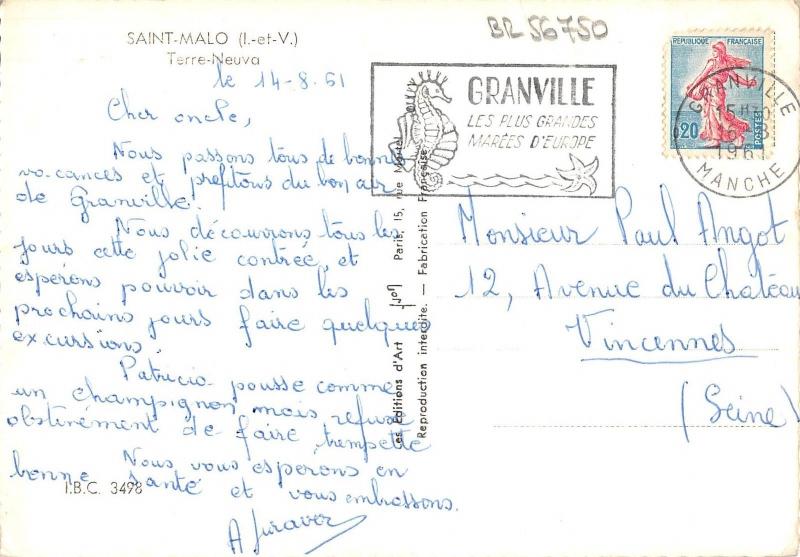 BR 56750
SAINT-MALO (I.-et-V.)
Terre-Neuva
le 14-8.61
Cher oncle,
Nous passons tous de bonnes
vacances et profitons du bon air
de Granville.
Nous découvrons tous les
jours cette jolie contrée, et
espérons pouvoir dans les
prochains jours faire quelques
excursions.
Patricia pousse comme
un champignon mais refuse
obstinément de faire trempette
Nous vous espérons en
bonne santé et vous embrassons.
I.B.C. 3498
GRANVILLE
LES PLUS GRANDES
MARÉES D'EUROPE
REPUBLIQUE FRANÇAISE
0,20
POSTES
GRANVILLE
15 H30
1961
MANCHE
Les Editions d'Art Paris, 15, rue Martel
Reproduction interdite. — Fabrication Française
Monsieur Paul Angot
12, Avenue du Château
Vincennes
(Seine)